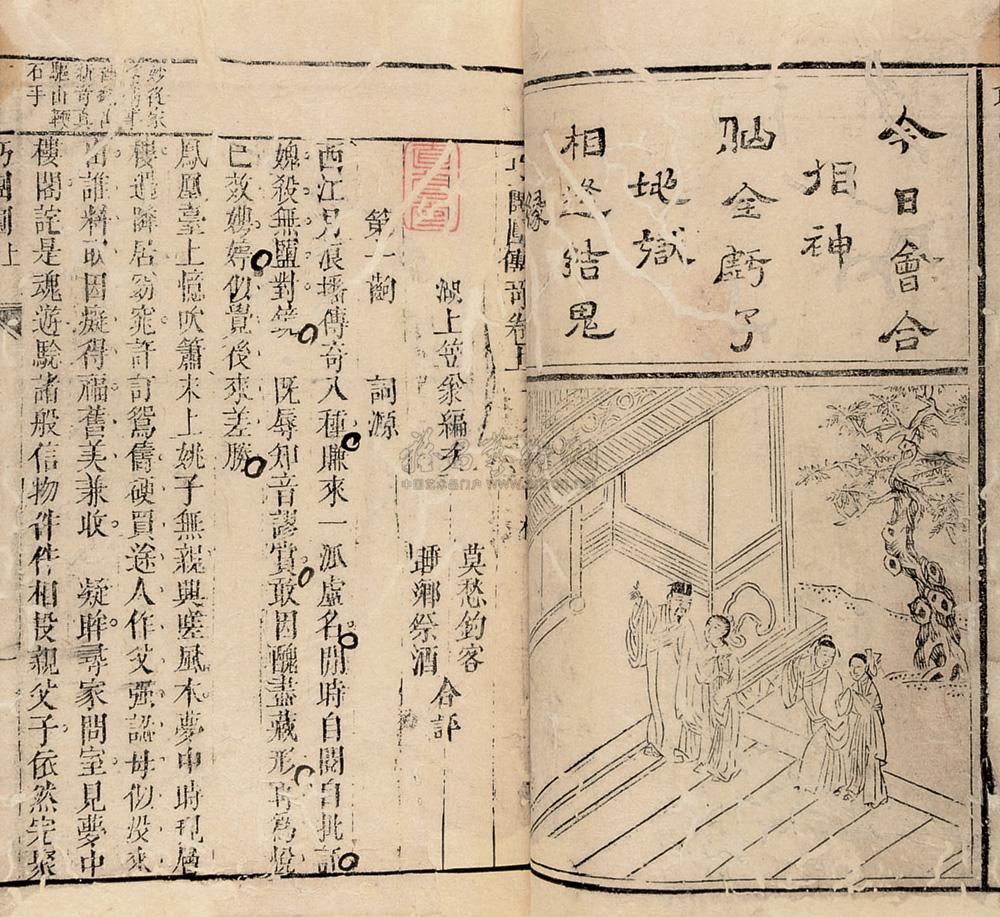 今日會合
相神
仙全虧了
地獄
相逢結鬼
緣
巧團圓傳奇卷上
湖上笠翁編次
莫愁釣客
睡鄉祭酒
合評
第一齣 詞源
西江月浪播傳奇八種賺來一派虛名閒時自閱自批評
媿殺無鹽對鏡 既辱知音謬賞敢因醜盡藏形再爲悅
已效娉婷似覺後來差勝
鳳凰臺上憶吹簫末上姚子無親興嗟風木夢中時現層
樓遇隣居窈窕許訂鴛儔硬買途人作父强認母似没來
由誰料取因癡得福舊美兼收 凝眸尋家問室見夢中
樓閣詫是魂遊驗諸般信物件件相投親父子依然完聚
新奇真
驅山鞭
石手
巧團圓上
一